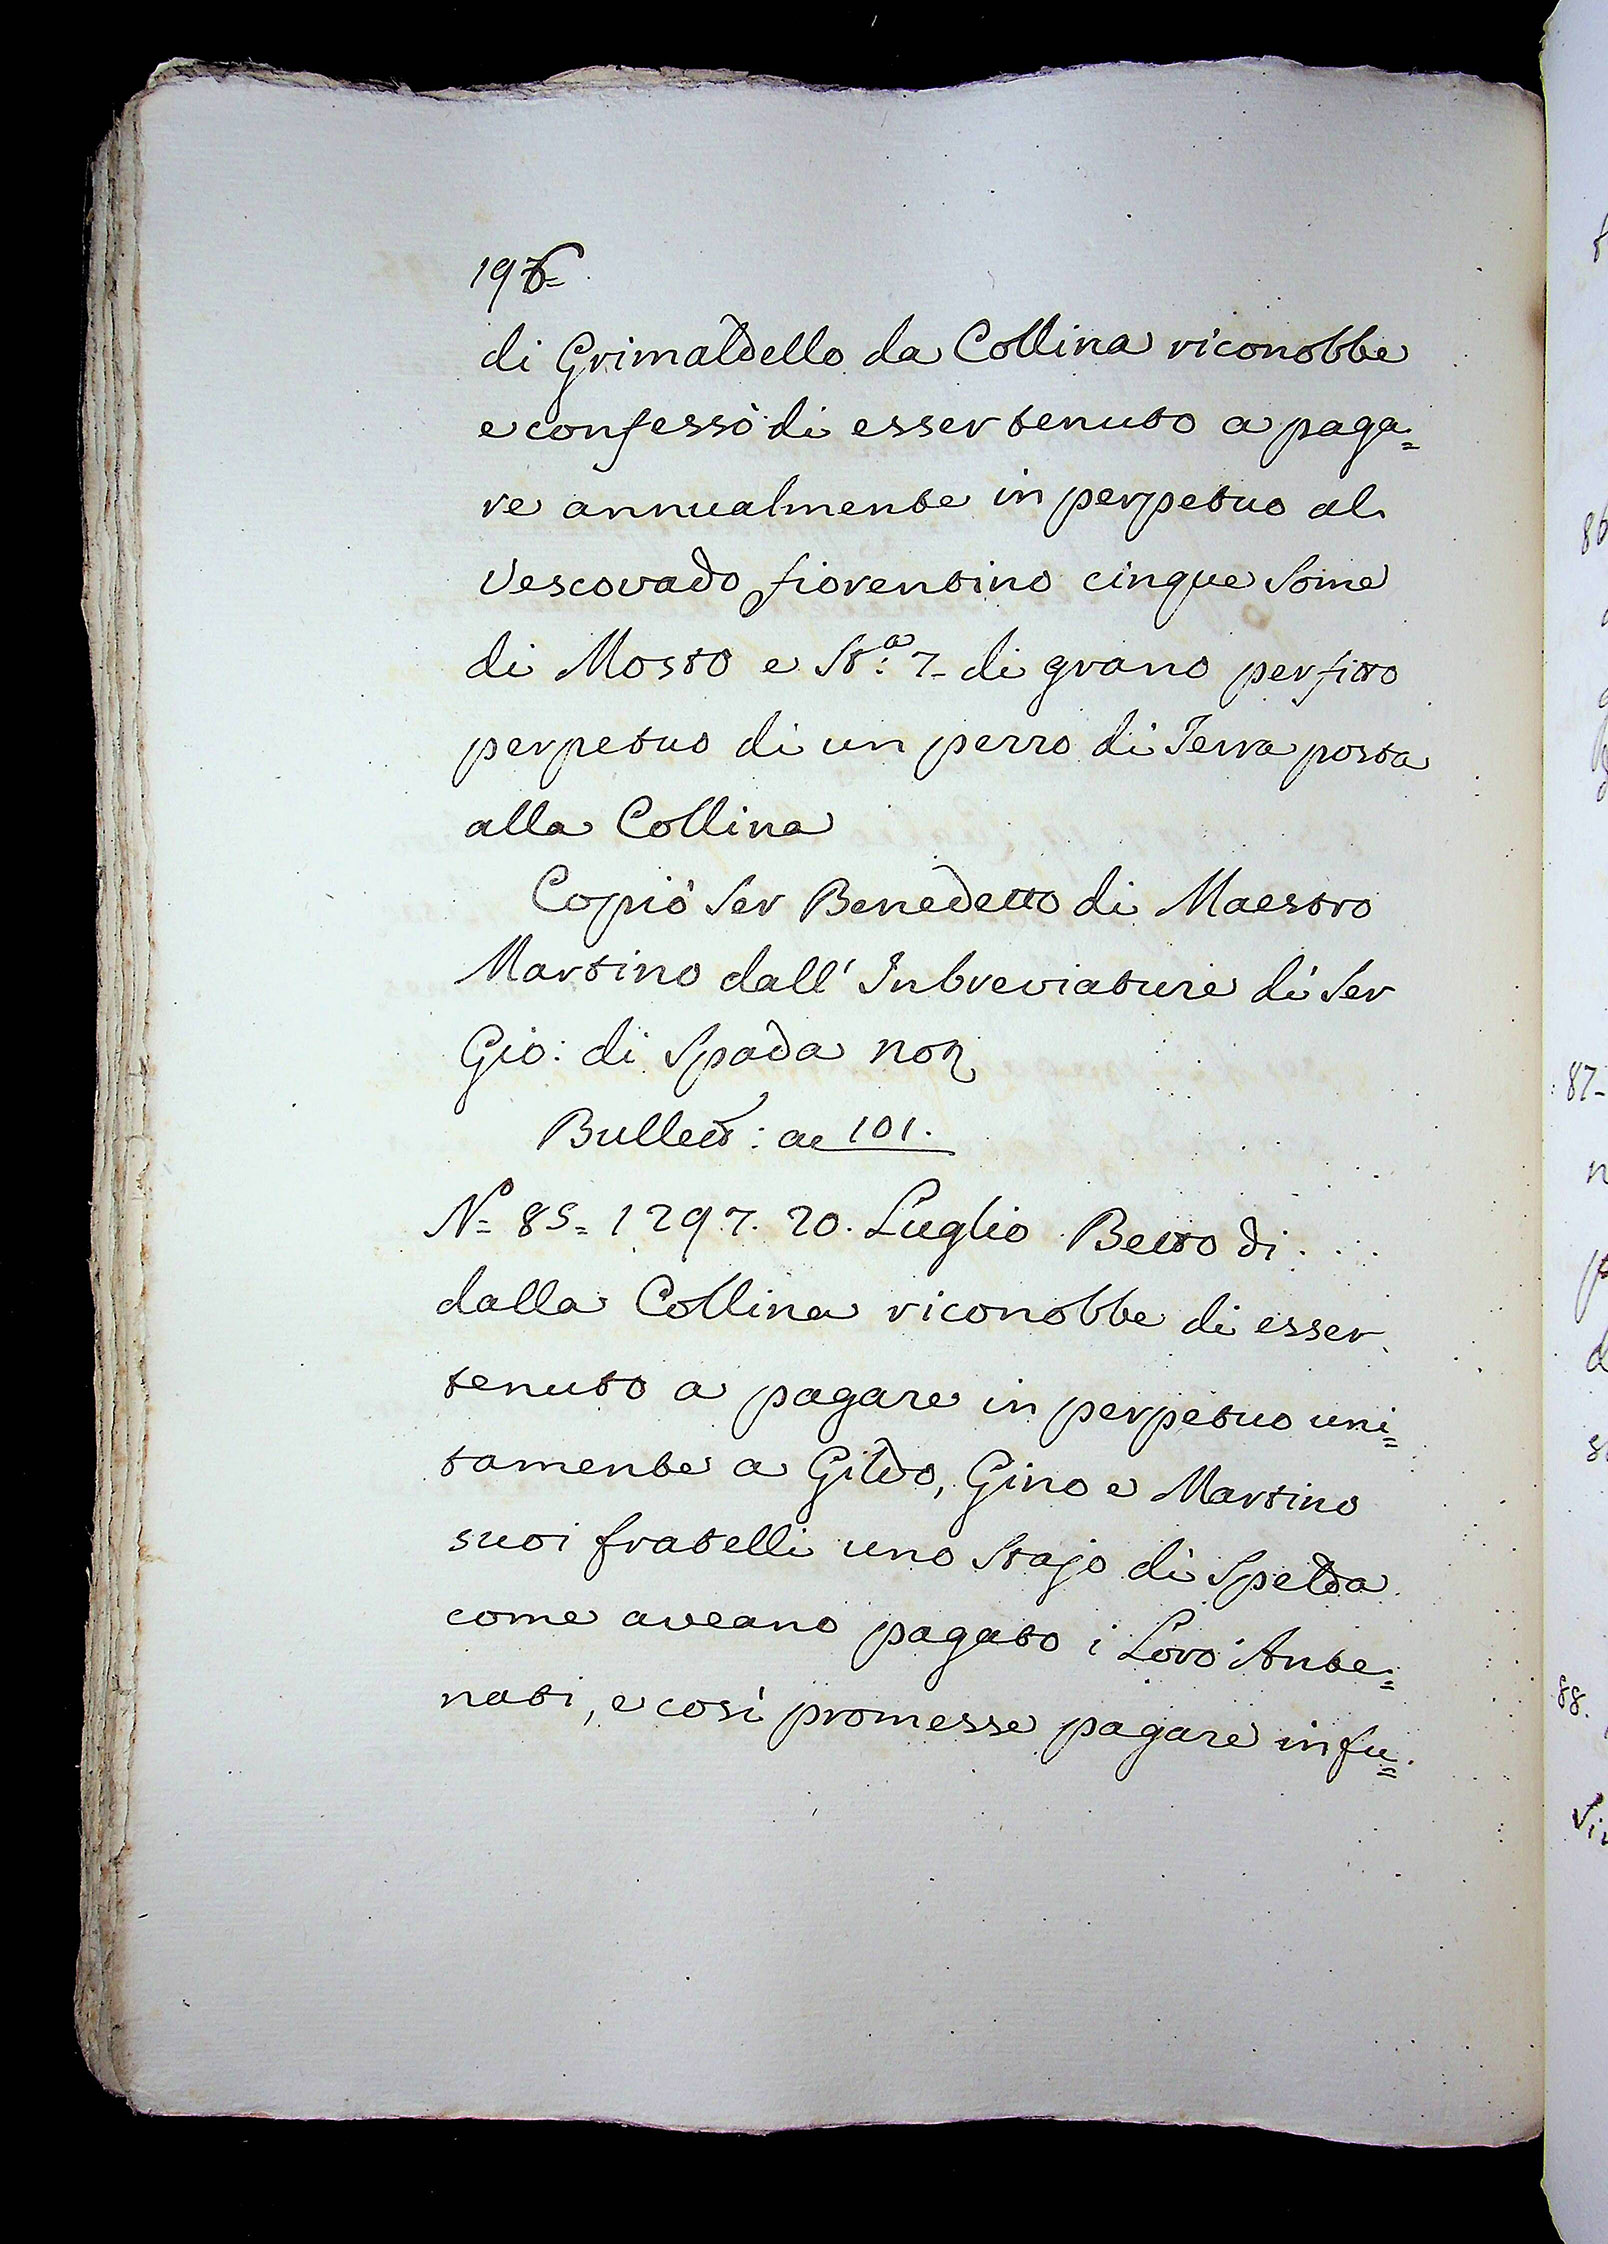 196=
di Grimaldello da Collina riconobbe
e confessò di esser tenuto a paga=
re annualmente in perpetuo al
Vescovado fiorentino cinque Some
di Mosto e St:a 7- di grano per fitto
perpetuo di un pezzo di Terra posta
alla Collina
Copiò Ser Benedetto di Maestro
Martino dall' Inbreviature di Ser
Gio: di Spada not
Bullett: ae 101.
No= 85= 1297. 20. Luglio Betto di . . . .
dalla Collina riconobbe di esser
tenuto a pagare in perpetuo uni=
tamente a Gildo, Gino e Martino
suoi fratelli uno Stajo di Spelda
come aveano pagato i Loro Ante=
nati, e così promesse pagare in fu=
86
87-
88.